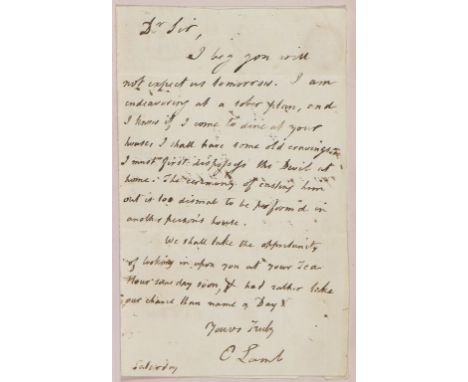 Dr Sir,
I beg you will
not expect us tomorrow. I am
endeavoring at a sober plan, and
I know if I come to dine at your
house I shall have some old cravings
I must first dispossess the Devil at
home. The ceremony of casting him
out is too dismal to be perform'd in
another person's house.
We shall take the opportunity
of looking in upon you at your Tea
Hour some day soon, & had rather take
our chance than name a Day
Yours Truly
C Lamb
Saturday